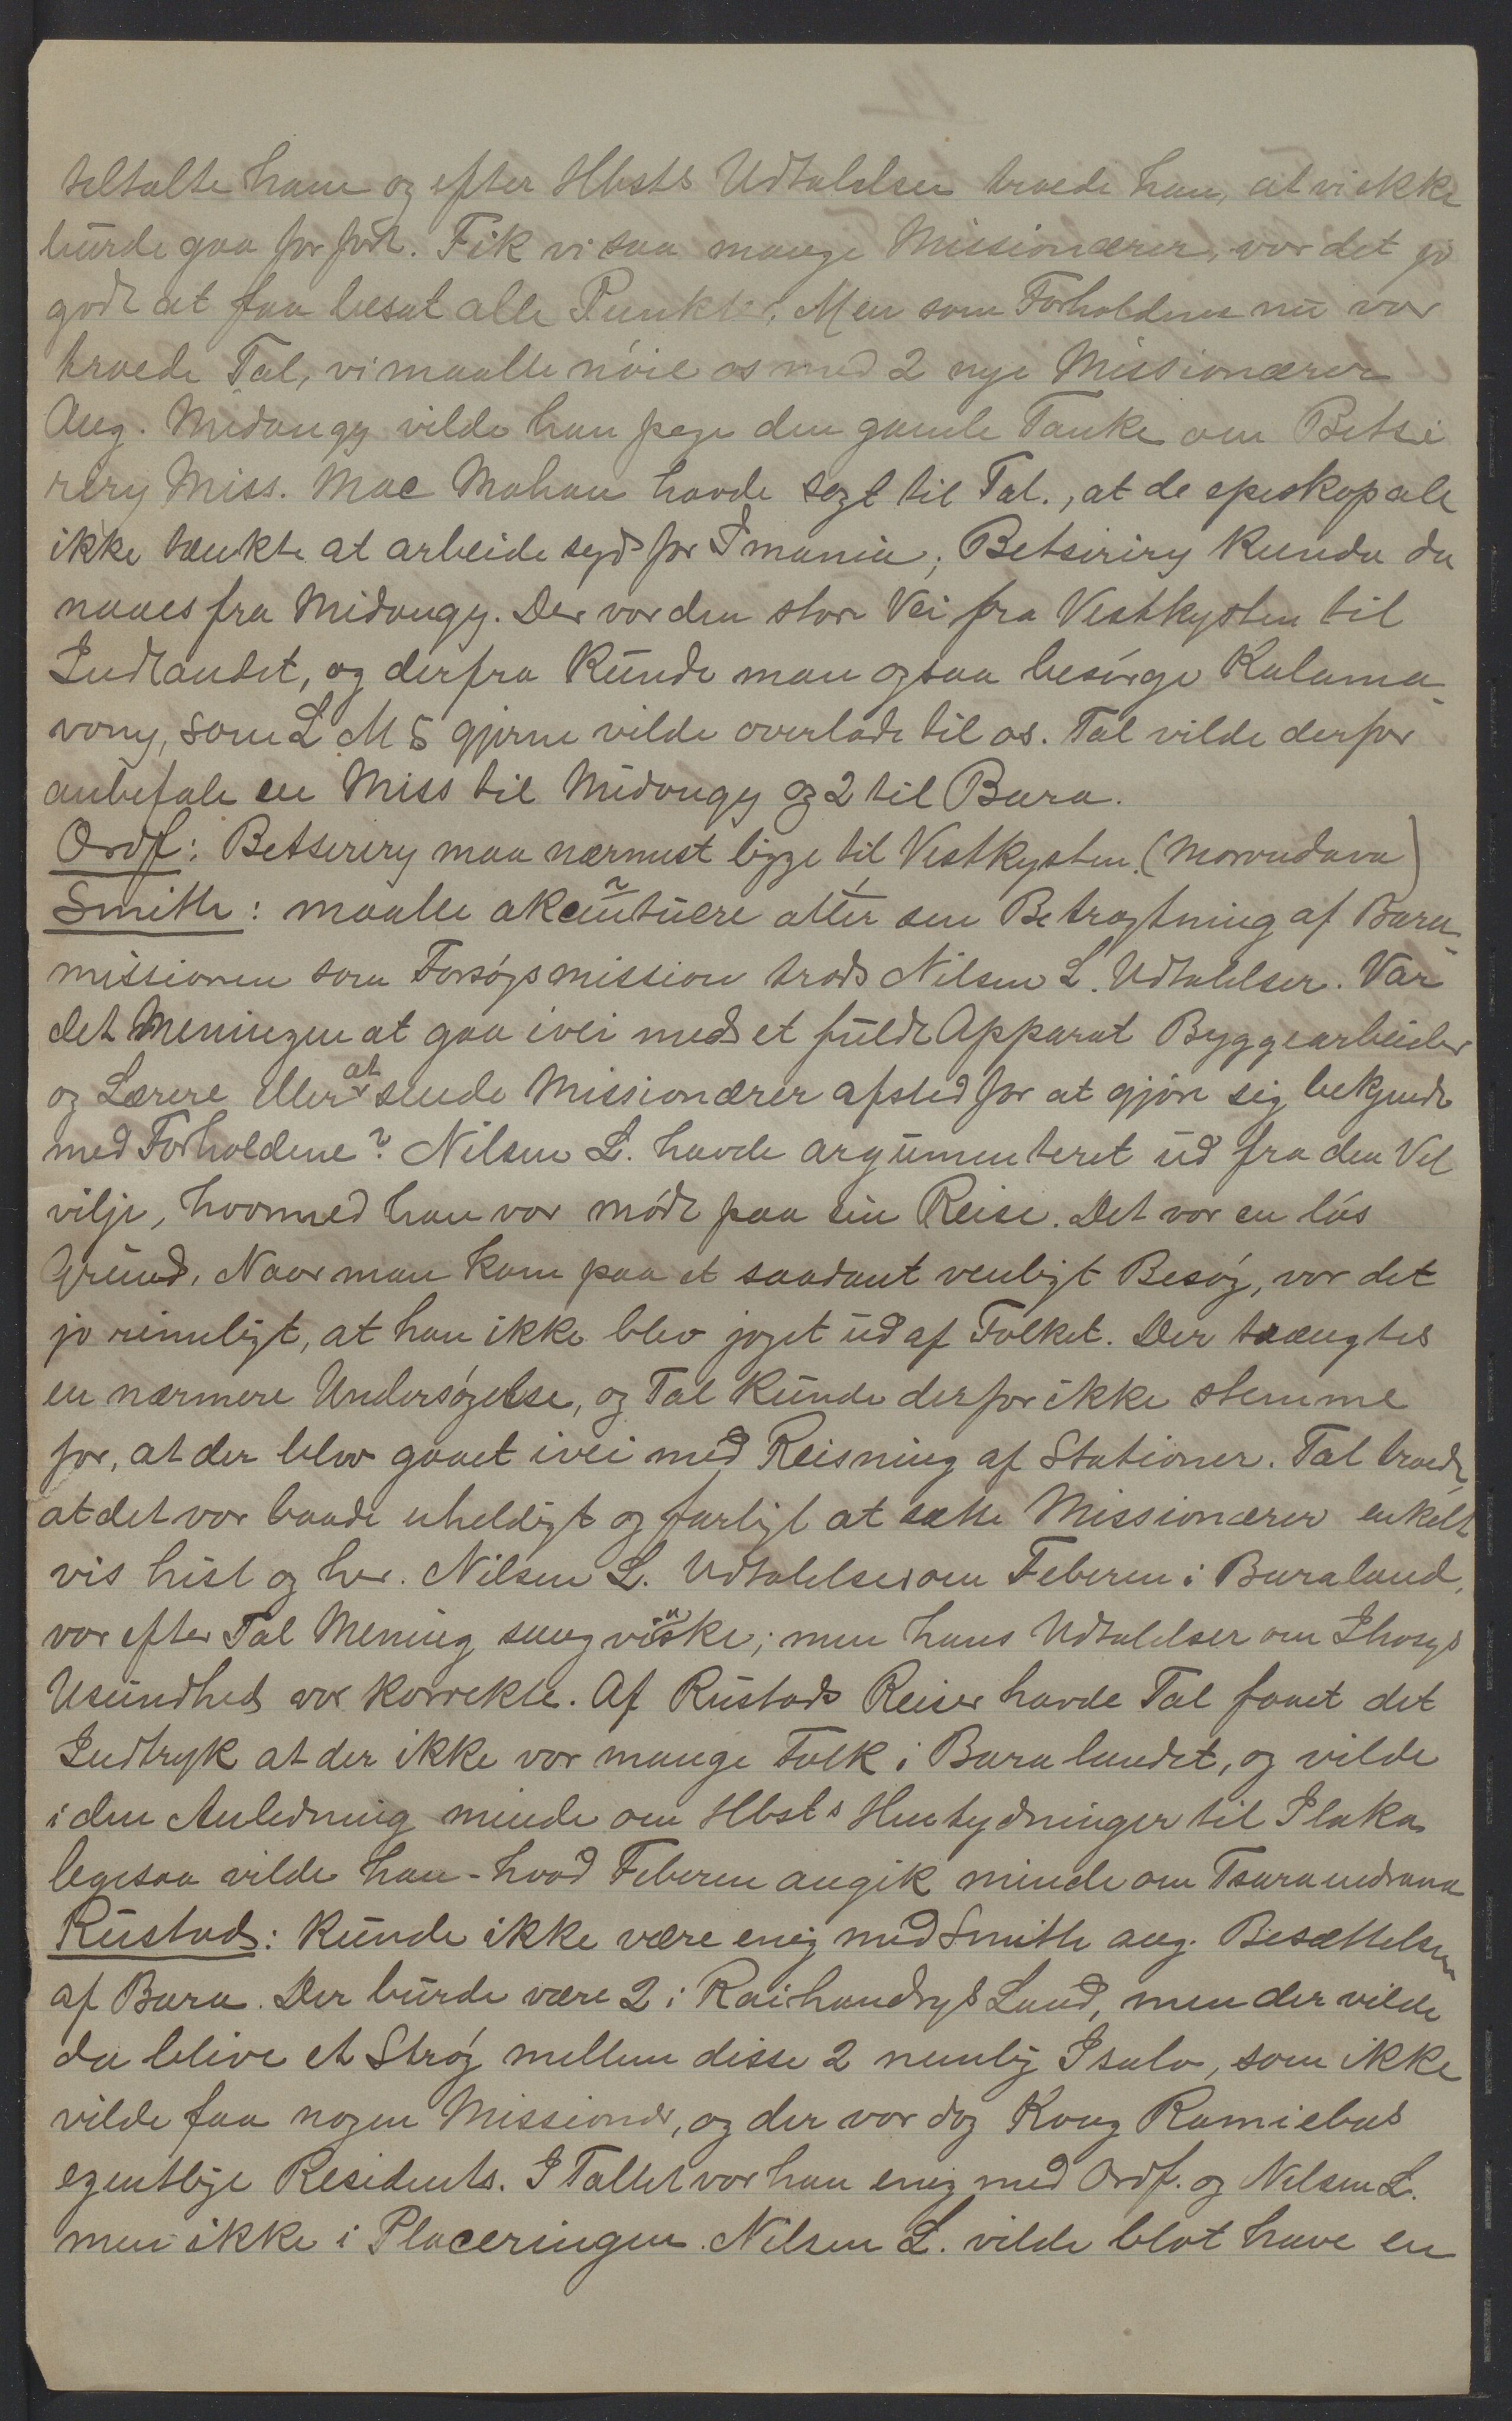 tiltalte ham og efter Hbsts Udtalelser troede han, at vi ikke
burde gaa for fort. Fik vi saa mange Missionærer, var det jo
godt at faa besat alle Punkter. Men som Forholdene nu var
troede Tal, vi maatte nöie os med 2 nye Missionærer
Ang. Midongy vilde han pege den gamle Tanke om Betsi
riry Miss. Mac Mahon havde sagt til Tal., at de episkopale
ikke tænkte at arbeide syd for Imania; Betsiriry kunde da
naaes fra Midongy. Der var den store Vei fra Vestkysten til
Indlandet, og derfra kunde man ogsaa besörge Kalama-
vony, som L M S gjerne vilde overlade til os. Tal vilde derfor
anbefale en Miss til Midongy og 2 til Bara.
Ordf: Betsiriry maa nærmest ligge til Vestkysten. (Morondava)
Smith: maatte akcentuere atter sin Betragtning af Bara-
missionen som Forsögsmission trods Nilsen L. Udtalelser. Var
det Meningen at gaa ivei med et fuldt Apparat Byggearbeider
og Lærere eller at sende Missionærer afsted for at gjöre sig bekjendt
med Forholdene? Nilsen L. havde argumenteret ud fra den Vel
vilje, hvormed han var mödt paa sin Reise. Det var en lös
Grund. Naar man kom paa et saadant venligt Besög, var det
jo rimeligt, at han ikke blev jaget ud af Folket. Der trængtes
en nærmere Undersögelse, og Tal kunde derfor ikke stemme
for, at der blev gaaet ivei med Reisning af Stationer. Tal troede,
at det var baade uheldigt og farligt at sætte Missionærer enkelt
vis hist og her. Nilsen L. Udtalelser om Feberen i Baraland,
var efter Tal Mening sangvinske; men hans Udtalelser om Ihosys
Usundhed var korrekte. Af Rustads Reiser havde Tal faaet det
Indtryk at der ikke var mange Folk i Baralandet, og vilde
i den Anledning minde om Hbsts Hentydninger til Ilaka
legesaa vilde han - hvad Feberen angik minde om Tsaraindrana
Rustad: kunde ikke være enig med Smith ang. Besættelsen
af Bara. Der burde være 2 i Raihandrys Land, men der vilde
da blive et Strög mellem disse 2 nemlig Isalo, som ikke
vilde faa nogen Missionær, og der var dog Kong Ramiebas
egentlige Residents. I Tallet var han enig med Ordf. og Nilsen L.
men ikke i Placeringen. Nilsen L. vilde blot have en